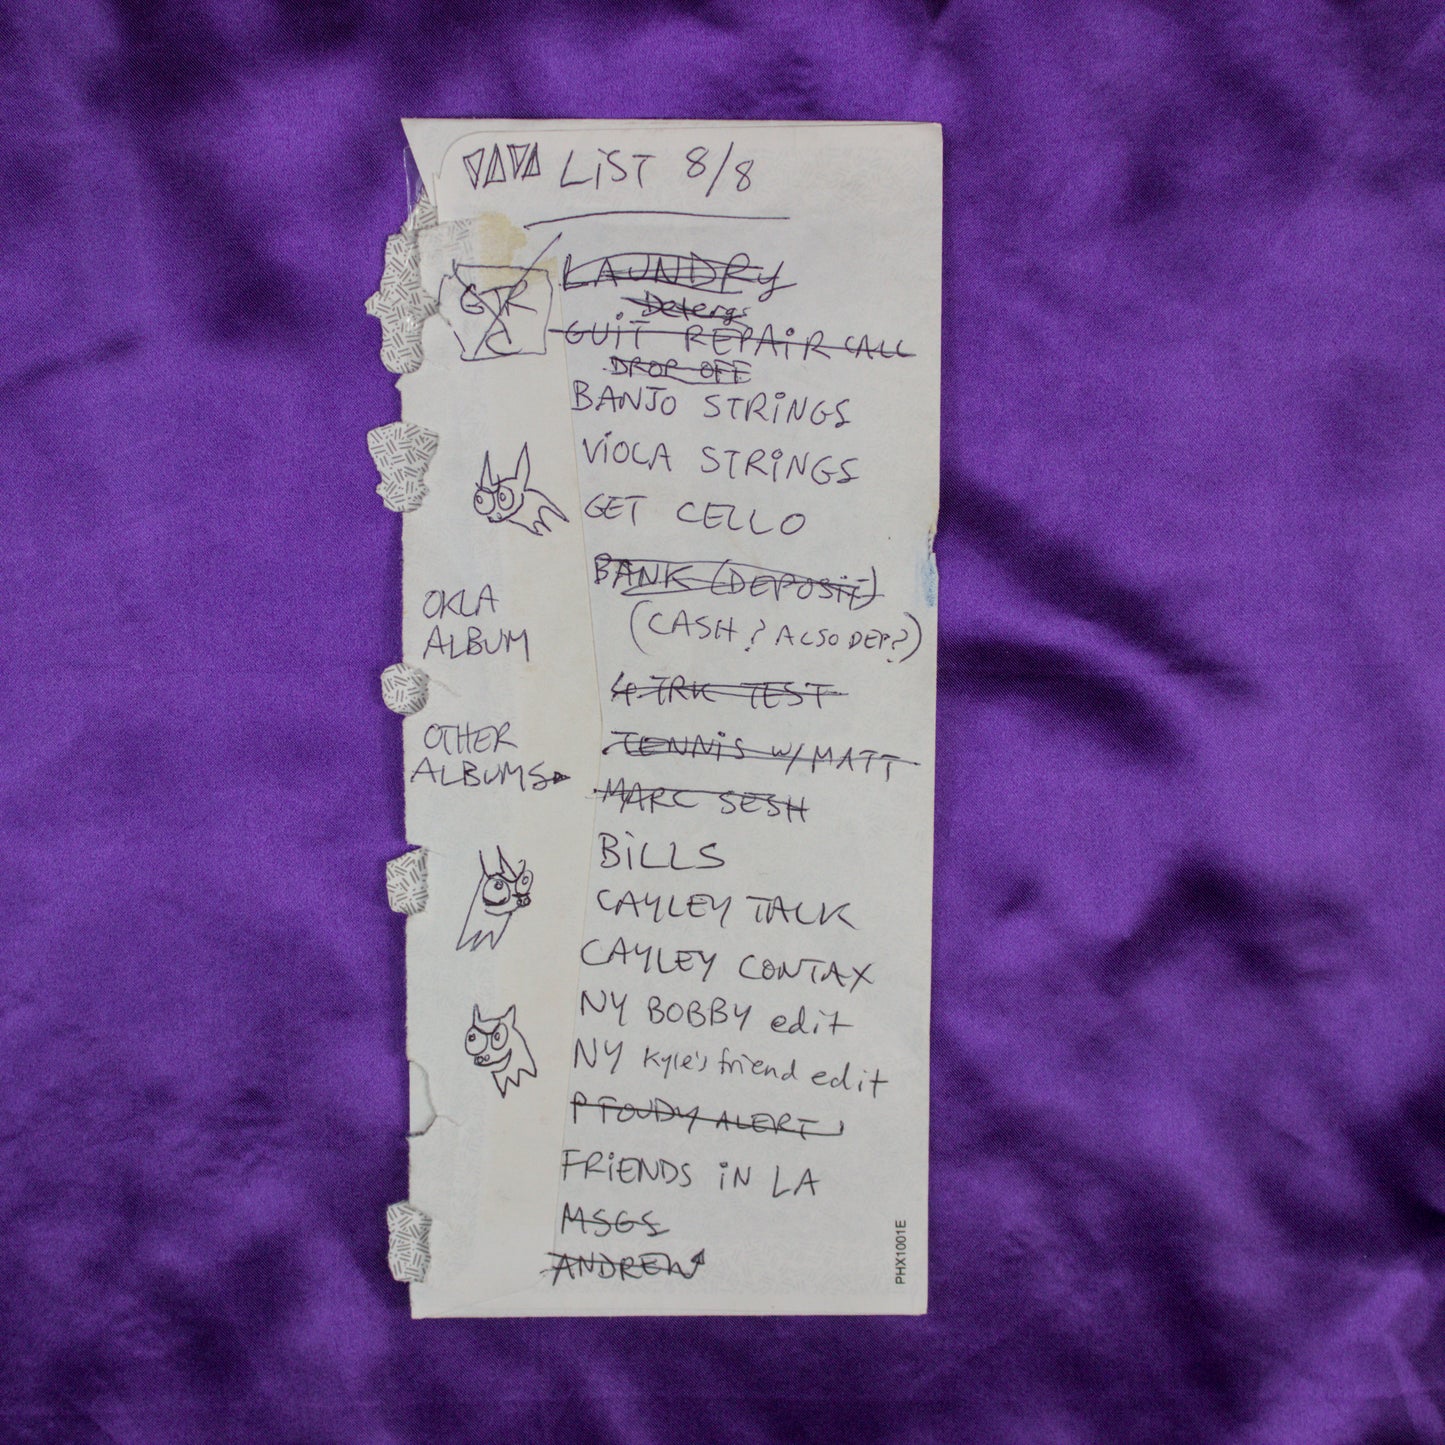 LiST 8/8
LAUNDRY
Deterg.
GTR
C
GUiT REPAiR CALL
DROP OFF
BANJO STRiNGS
ViOLA STRiNGS
GET CELLO
BANK (DEPOSiT)
(CASH? ALSO DEP?)
OKLA
ALBUM
4 TRK TEST
OTHER
ALBUMS
TENNiS W/ MATT
MARC SESH
BiLLS
CAYLEY TALK
CAYLEY CONTAX
NY BOBBY edit
NY Kyle's friend edit
ALERT
FRiENDS iN LA
MSGS
ANDREW
PHX1001E